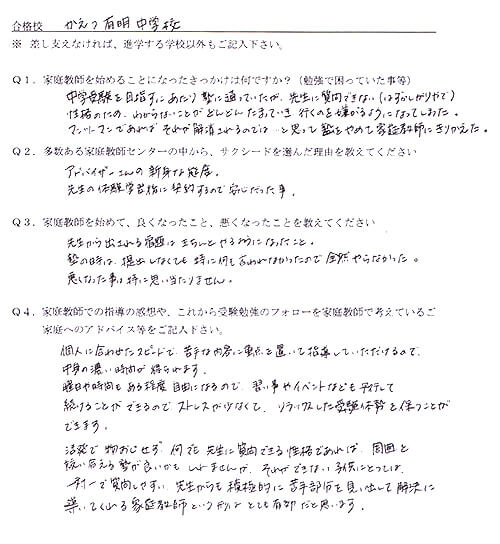 合格校　かえつ有明中学校
※ 差し支えなければ、進学する学校以外もご記入下さい。
Q1．家庭教師を始めることになったきっかけは何ですか？（勉強で困っていた事等）
中学受験を目指すにあたり塾に通っていたが、先生に質問できない（はずかしがりやで）
性格のため、わからないことがどんどんたまっていき行くのを嫌がるようになってしまった。
マンツーマンであれば それが解消されるのでは… と思って塾をやめて家庭教師にきりかえた。
Q2．多数ある家庭教師センターの中から、サクシードを選んだ理由を教えてください
アドバイザーさんの親身な態度。
先生の体験学習後に契約するので安心だった事。
Q3．家庭教師を始めて、良くなったこと、悪くなったことを教えてください
先生から出される宿題はきちんとやるようになったこと。
塾の時は、提出しなくても特に何も言われなかったので全然やらなかった。
悪くなった事は特に思い当たりません。
Q4．家庭教師での指導の感想や、これから受験勉強のフォローを家庭教師で考えているご
家庭へのアドバイス等をご記入下さい。
個人に合わせたスピードで、苦手な内容に重点を置いて指導していただけるので、
中身の濃い時間が得られます。
曜日や時間もある程度自由になるので、習い事やイベントなども
続けることができるのでストレスが少なくて、リラックスした受験体勢を保つことが
できます。
活発で物おじせず、何でも先生に質問できる性格であれば、周囲と
競い合える塾が良いかもしれませんが、それができない子供にとっては、
質問しやすい、先生からも積極的に苦手部分を見い出して解決に
導いてくれる家庭教師という形はとても有効だと思います。